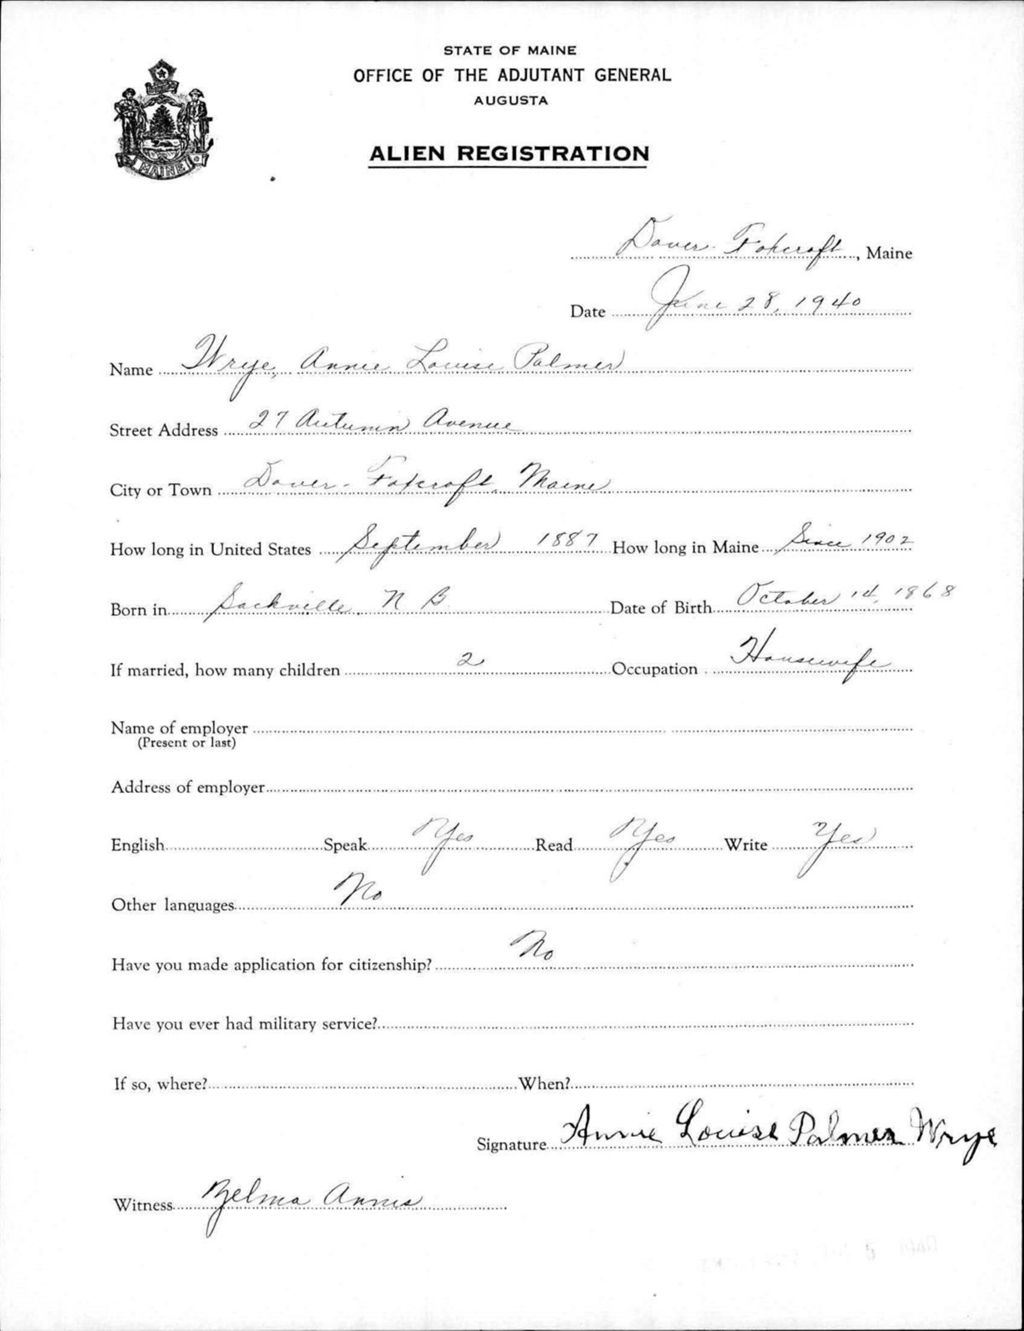 STATE OF MAINE
OFFICE OF THE ADJUTANT GENERAL
AUGUSTA
ALIEN REGISTRATION
MAINE
Dover-Foxcroft, Maine
Date June 28, 1940
Name Wrye, Annie Louise Palmer
Street Address 27 Autumn Avenue
City or Town Dover-Foxcroft, Maine
How long in United States September 1887 How long in Maine Since 1902
Born in Sackville, N B Date of Birth October 14, 1868
If married, how many children 2 Occupation Housewife
Name of employer
(Present or last)
Address of employer
English Speak Yes Read Yes Write Yes
Other languages No
Have you made application for citizenship? No
Have you ever had military service?
If so, where? When?
Signature Annie Louise Palmer Wrye
Witness Zelma Annis